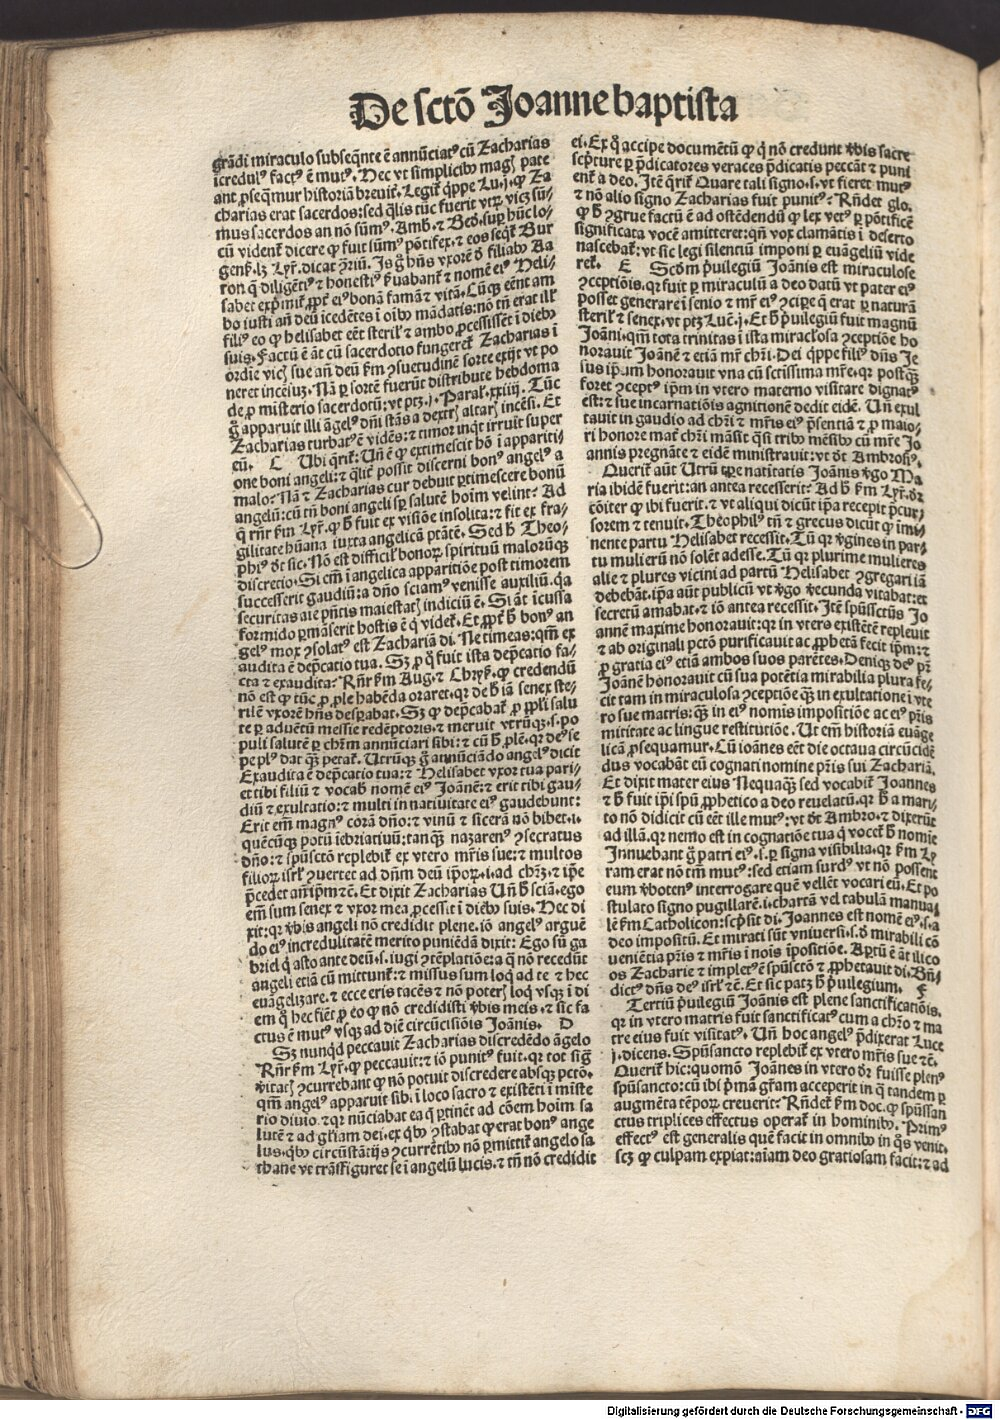 De sctō Joanne baptista
grādi miraculo subseqn̄te ē annūciatꝰ cū Zacharias
icredulꝰ factꝰ ē mutꝰ. Hec vt simplicibꝰ magꝭ pate
ant ꝓseq̄mur historiā breuiť. Legiť q̄ppe Lu.j. ꝙ Za
charias erat sacerdos: sed q̄lis tūc fuerit vtꝝ vicꝫ sum⸗
mus sacerdos an nō sūmꝰ. Amb. ⁊ Bed. suꝑ hūc lo⸗
cū vident̄ dicere ꝙ fuit sūmꝰ pōtifex. ⁊ eos seqť Bur
genß. lꝫ Lyr̄. dicat ꝯriū. Is gͦ hn̄s vxorē ď filiabꝰ Aa
ron q̄ diligētiꝰ ⁊ honestiꝰ ẜuabant̄ ⁊ nomē eiꝰ Heli⸗
sabet exp̄mit̄ ꝓpť eiꝰ bonā famā ⁊ vitā. Cūqꝫ eēnt am
bo iusti an̄ deū icedētes i oībꝰ mādatis: nō tn̄ erat illꝭ
filiꝰ eo ꝙ helisabet eēt sterilꝭ ⁊ ambo ꝓcessissēt i diebꝰ
suis. Factū ē āt cū sacerdotio fungereť Zacharias i
ordīe vicꝭ sue an̄ deū ẜm ꝯsuetudinē sorte exijt vt po
neret incēsuꝫ. Nā ꝑ sortē fuerūt distribute hebdoma
de ꝓ misterio sacerdotū: vt ptꝫ .j. Paral. xxiiij. Tūc
gͦ apparuit illi āgelꝰ dn̄i stās a dextrꝭ altarꝭ incēsi. Et
Zacharias turbatꝰ ē vidēs: ⁊ timor inqͭ irruit super
eū. C Ubi q̄riť: Un̄ ē ꝙ extimescit hō i appariti⸗
one boni angeli: ⁊ q̄liť possit discerni bonꝰ angelꝰ a
malo: Nā ⁊ Zacharias cur debuit ꝑtimescere bonū
angelū: cū tn̄ boni angeli sꝑ salutē hoīm velint: Ad
q̄ rn̄r ẜm Lyr̄. ꝙ ḣ fuit ex visiōe insolita: ⁊ fit ex fra⸗
gilitate hūana iuxta angelicā ptātē. Sed ḣ Theo⸗
phiꝰ ďt sic. Nō est difficilꝭ bonoꝝ spirituū malorūqꝫ
discretio. Si em̄ i angelica apparitiōe post timorem
successerit gaudiū: a dn̄o sciamꝰ venisse auxiliū. qa
securitas aīe pn̄tis maiestatꝭ indiciū ē. Si āt icussa
formido ꝑmāserit hostis ē q̄ videť. Et ꝓpť ḣ bonꝰ an
gelꝰ mox ꝯsolatꝰ est Zachariā di. Ne timeas: qm̄ ex
audita ē dep̄catio tua. Sꝫ ꝓ qͦ fuit ista dep̄catio fa⸗
cta ⁊ exaudita: Rn̄r ẜm Aug. ⁊ Chrẏs. ꝙ credendū
nō est ꝙ tūc ꝓ ꝓle habēda oraret. qꝛ de ḣ iā senex ste⸗
rilē vxorē hn̄s desꝑabat. Sꝫ ꝙ dep̄cabať ꝓ ppl̄i salu
te ꝑ aduētū messie redēptoris. ⁊ meruit vtrūqꝫ. s. po
puli salutē ꝑ chr̄m annūciari sibi: ⁊ cū ḣ ꝓlē. qꝛ deꝰ se
pe plꝰ dat qꝫ petať. Utrūqꝫ gͦ annūciādo angelꝰ dicit
Exaudita ē dep̄catio tua: ⁊ Helisabet vxor tua pari⸗
et tibi filiū ⁊ vocabꝭ nomē eiꝰ Joānē: ⁊ erit tibi gau⸗
diū ⁊ exultatio: ⁊ multi in natiuitate eiꝰ gaudebunt:
Erit em̄ magnꝰ corā dn̄o: ⁊ vinū ⁊ sicerā nō bibet. i.
quēcūqꝫ potū iēbriatiuū: tanqꝫ nazarenꝰ ꝯsecratus
dn̄o: ⁊ spūsctō replebiť ex vtero mr̄is sue: ⁊ multos
filioꝝ isrl̄ ꝯuertet ad dn̄m deū ip̄oꝝ. i. ad chr̄ꝫ: ⁊ ip̄e
p̄cedet an̄ ip̄m ⁊c̄. Et dixit Zacharias Un̄ ḣ sciā. ego
em̄ sum senex ⁊ vxor mea ꝓcessit i diebꝰ suis. Hec di
xit: qꝛ ꝟbis angeli nō credidit plene. iō angelꝰ arguē
do eiꝰ incredulitatē merito puniēdā dixit: Ego sū ga
briel q̄ asto ante deū. s. iugi ꝯtēplatiōe: a q̄ nō recedūt
angeli etiā cū mittunť: ⁊ missus sum loq̄ ad te ⁊ hec
euāgelizare. ⁊ ecce eris tacēs ⁊ nō poterꝭ loq̄ vsqꝫ i di
em q̄ hec fiēt ꝓ eo ꝙ nō credidisti ꝟbis meis. ⁊ sic fa
ctus ē mutꝰ vsqꝫ ad diē circūcisiōis Joānis. D
Sꝫ nunqͥd peccauit Zacharias discredēdo āgelo
Rn̄r ẜm Lyr̄. ꝙ peccauit: ⁊ iō punitꝰ fuit. qꝛ tot sigͣ
ꝟitatꝭ ꝯcurrebant ꝙ nō potuit discredere absqꝫ pctō.
qm̄ angelꝰ apparuit sibi i loco sacro ⁊ existēti i miste
rio diuio. ⁊ qꝛ nūciabat ea q̄ ꝑtinēt ad cōem hoīm sa
lutē ⁊ ad gl̄iam dei. ex qͥbꝰ ꝯstabat ꝙ erat bonꝰ ange
lus. qͥbꝰ circūstātijs ꝯcurrētibꝰ nō ꝑmittiť angelo sa
thane vt trāsfiguret se i angelū lucis. ⁊ tn̄ nō credidit
ei. Ex q̄ accipe documētū ꝙ q̄ nō credunt ꝟbis sacre
scp̄ture ꝑ p̄dicatores veraces p̄dicatis peccāt ⁊ puni
enť a deo. Itē q̄riť Quare tali signo. s. vt fieret mutꝰ
⁊ nō alio signo Zacharias fuit punitꝰ: Rn̄det glo.
ꝙ ḣ ꝯgrue factū ē ad ostēdendū ꝙ lex vetꝰ ꝑ pōtificē
significata vocē amitteret: qn̄ vox clamātis i deserto
nascebať: vt sic legi silentiū imponi ꝑ euāgeliū vide
reť. E Scd̄m p̄uilegiū Joānis est miraculose
ꝯceptiōis. qꝛ fuit ꝑ miraculū a deo datū vt pater eiꝰ
posset generare i senio ⁊ mr̄ eiꝰ ꝯcipe q̄ erat ꝑ naturā
sterilꝭ ⁊ senex. vt ptꝫ Luc̄. j. Et ḣ p̄uilegiū fuit magnū
Joāni. qm̄ tota trinitas i ista miracl̄osa ꝯceptiōe ho
norauit Joānē ⁊ etiā mr̄ chr̄i. Dei q̄ppe filiꝰ dn̄s Je
sus ip̄um honorauit vna cū sctissima mr̄e. qꝛ postqꝫ
foret ꝯceptꝰ ip̄m in vtero materno visitare dignatꝰ
est: ⁊ sue incarnatiōis agnitionē dedit eidē. Un̄ exul
tauit in gaudio ad chr̄i ⁊ mr̄is eiꝰ p̄sentiā ⁊ ꝓ maio⸗
ri honore maťr chr̄i māsit qͣsi tribꝰ mēsibꝰ cū mr̄e Jo
annis pregnāte ⁊ eidē ministrauit: vt ďt Ambrosiꝰ.
Querit̄ aūt Utrū tꝑe natitatis Joānis ꝟgo Ma
ria ibidē fuerit: an antea recesserit: Ad ḣ ẜm Lyr̄. ďr
cōiter ꝙ ibi fuerit. ⁊ vt aliqui dicūt ip̄a recepit p̄cur⸗
sorem ⁊ tenuit. Theophilꝰ tn̄ ⁊ grecus dicūt ꝙ īmi⸗
nente partu Helisabet recessit. Tū qꝛ ꝟgines in par⸗
tu mulierū nō solēt adesse. Tū qꝛ plurime mulieres
alie ⁊ plures vicini ad partū Helisabet ꝯgregari iā
debebāt. ip̄a aūt publicū vt ꝟgo ꝟecunda vitabat: et
secretū amabat. ⁊ iō antea recessit. Itē spūssctūs Jo
annē maxime honorauit: qꝛ in vtero existētē repleuit
⁊ ab originali pctō purificauit ac ꝓphetā fecit ip̄m: ⁊
ꝑ gratia eiꝰ etiā ambos suos parētes. Deniqꝫ deꝰ pr̄
Joānē honorauit cū sua potētia mirabilia plura fe⸗
cit tam in miraculosa ꝯceptiōe qꝫ in exultatione i vte
ro sue matris: qꝫ in eiꝰ nomīs impositiōe ac eiꝰ pr̄is
mititate ac lingue restitutiōe. Ut em̄ historiā euāge
licā ꝓsequamur. Cū ioānes eēt die octaua circūcidē
dus vocabāt eū cognati nomine pr̄is sui Zachariā.
Et dixit mater eius Nequaqꝫ sed vocabiť Joannes
⁊ ḣ fuit ip̄i spū ꝓphetico a deo reuelatū. qꝛ ḣ a mari⸗
to nō didicit cū eēt ille mutꝰ: vt ďt Ambro. ⁊ dixerūt
ad illā. qꝛ nemo est in cognatiōe tua q̄ voceť ḣ nomīe
Innuebant gͦ patri eiꝰ. s. ꝑ signa visibilia. qꝛ ẜm Ly
ram erat nō tm̄ mutꝰ: sed etiam surdꝰ vt nō possent
eum ꝟbotenꝰ interrogare quē vellēt vocari eū. Et po
stulato signo pugillarē. i. chartā vel tabulā manua⸗
lē ẜm Catholicon: scp̄sit di. Joannes est nomē eiꝰ. s. a
deo impositū. Et mirati sūt vniuersi. s. ď mirabili cō
ueniētia pr̄is ⁊ mr̄is i noīs ip̄ositiōe. Aꝑtū ē āt ilico
os Zacharie ⁊ impletꝰ ē spūsctō ⁊ ꝓphetauit di. Bn̄⸗
dictꝰ dn̄s deꝰ isrl̄ ⁊c̄. Et sic patꝫ ḣ p̄uilegium. F
Tertiū p̄uilegiū Joānis est plene sanctificatiōis.
qꝛ in vtero matris fuit sanctificatꝰ cum a chr̄o ⁊ ma
tre eius fuit visitatꝰ. Un̄ hoc angelꝰ p̄dixerat Luce
j. dicens. Spūsancto replebiť ex vtero mr̄is sue ⁊c̄.
Queriť hic: quomō Joānes in vtero ďr fuisse plenꝰ
spūsancto: cū ibi p̄mā gr̄am acceperit in q̄ tandem ꝑ
augmēta tēpoꝝ creuerit: Rn̄deť ẜm doc. ꝙ spūssan
ctus triplices effectus operať in hominibꝰ. Primꝰ
effectꝰ est generalis quē facit in omnibꝰ in q̄s venit.
scꝫ ꝙ culpam expiat: aīam deo gratiosam facit: ⁊ ad
Digitalisierung gefördert durch die Deutsche Forschungsgemeinschaft - DFG